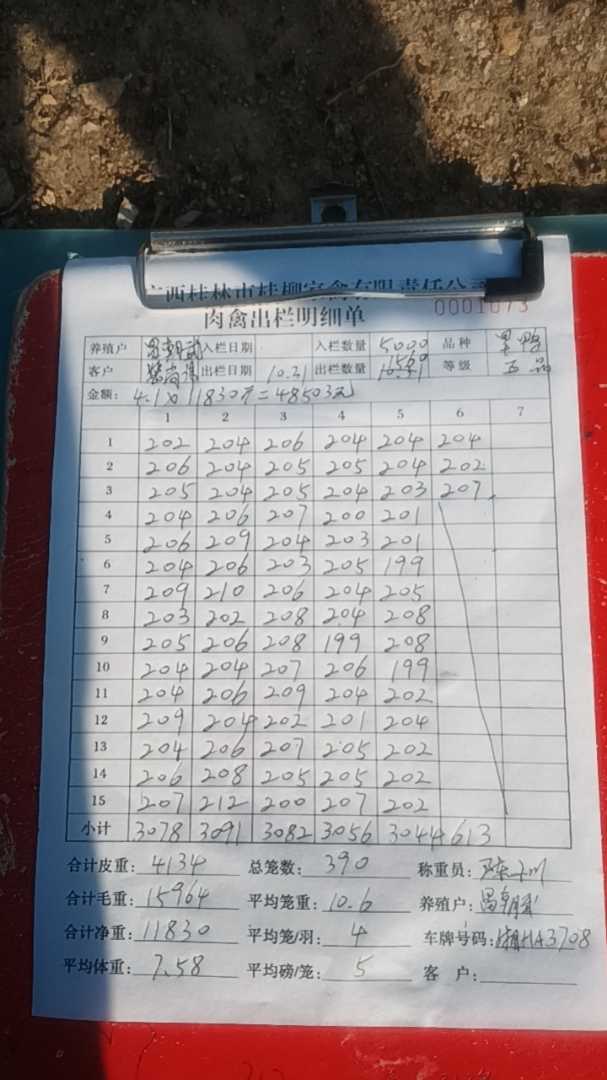 广西桂林市桂柳家禽有限责任公司
肉禽出栏明细单 0001073
养殖户 入栏日期 入栏数量 5000 品种 黑鸭
客户 出栏日期 10.21 出栏数量 1560 等级
金额: 4.1×11830斤=48503元
1 2 3 4 5 6 7
1 202 204 206 204 204 204
2 206 204 205 205 204 202
3 205 204 205 204 203 207
4 204 206 207 200 201
5 206 209 204 203 201
6 204 206 203 205 199
7 209 210 206 204 205
8 203 202 208 204 208
9 205 206 208 199 208
10 204 204 207 206 199
11 204 206 209 204 202
12 209 204 202 201 204
13 204 206 207 205 202
14 206 208 205 205 202
15 207 212 200 207 202
小计 3078 3091 3082 3056 3044 613
合计皮重: 4134 总笼数: 390 称重员:
合计毛重: 15964 平均笼重: 10.6 养殖户:
合计净重: 11830 平均笼/羽: 4 车牌号码: 湘HA3708
平均体重: 7.58 平均磅/笼: 5 客 户: